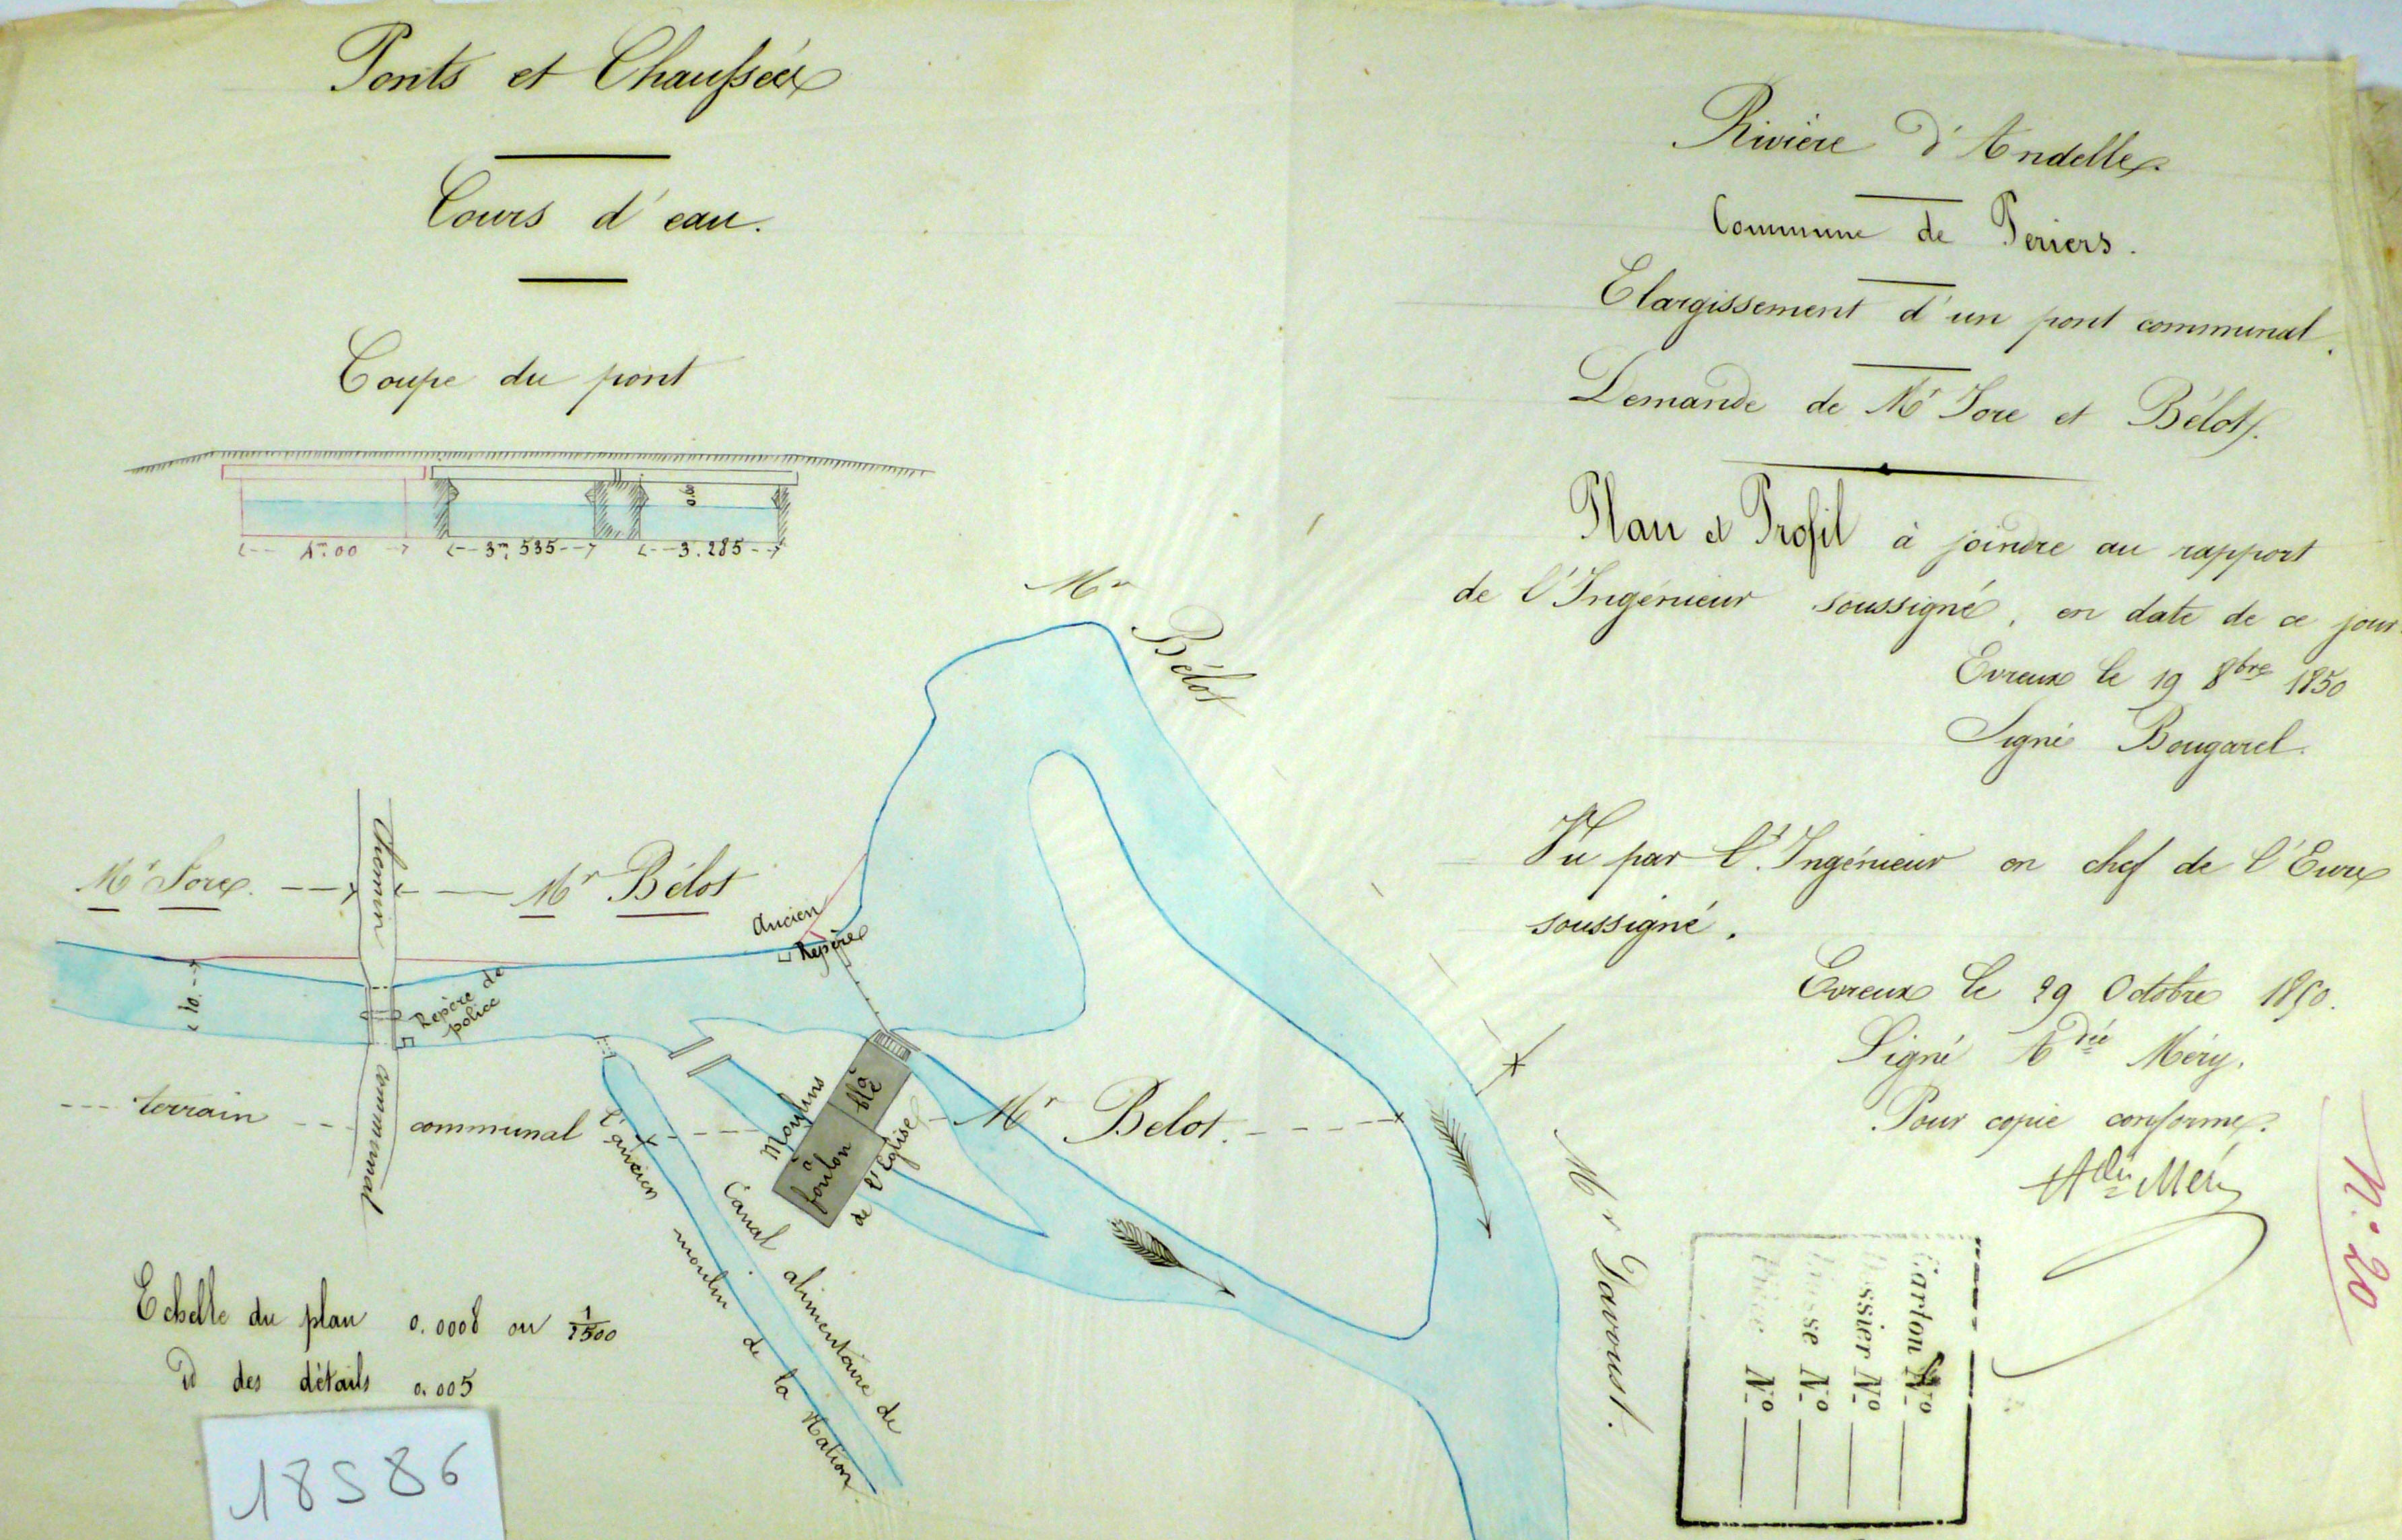 Ponts et Chaussées
Cours d'eau.
Coupe du pont
0.80
4m.00
3m.535
3.285
Rivière d'Andelle.
Commune de Periers.
Elargissement d'un pont communal.
Demande de Mr Sore et Bélot.
Plan et Profil à joindre au rapport
de l'Ingénieur soussigné, en date de ce jour
Evreux le 19 8bre 1850
Signé Bougarel.
Vu par l'Ingénieur en chef de l'Eure
soussigné.
Evreux le 29 Octobre 1850.
Signé Adie Méry.
Pour copie conforme.
Adie Méry
N.° 20
Mr
Bélot
Mr Sore.
Chemin
Mr Bélot
Ancien
Repère
10.
Repère de
police
terrain
communal
communal
Moulins
à
blé
à
foulon
de l'Eglise
Mr Belot.
Mr Davoust.
Canal alimentaire de
l'ancien moulin de la Nation
Echelle du plan 0.0008 ou 1/1500
Id des détails 0.005
Carton N.°
Dossier N.°
Liasse N.°
Pièce N.°
18S86